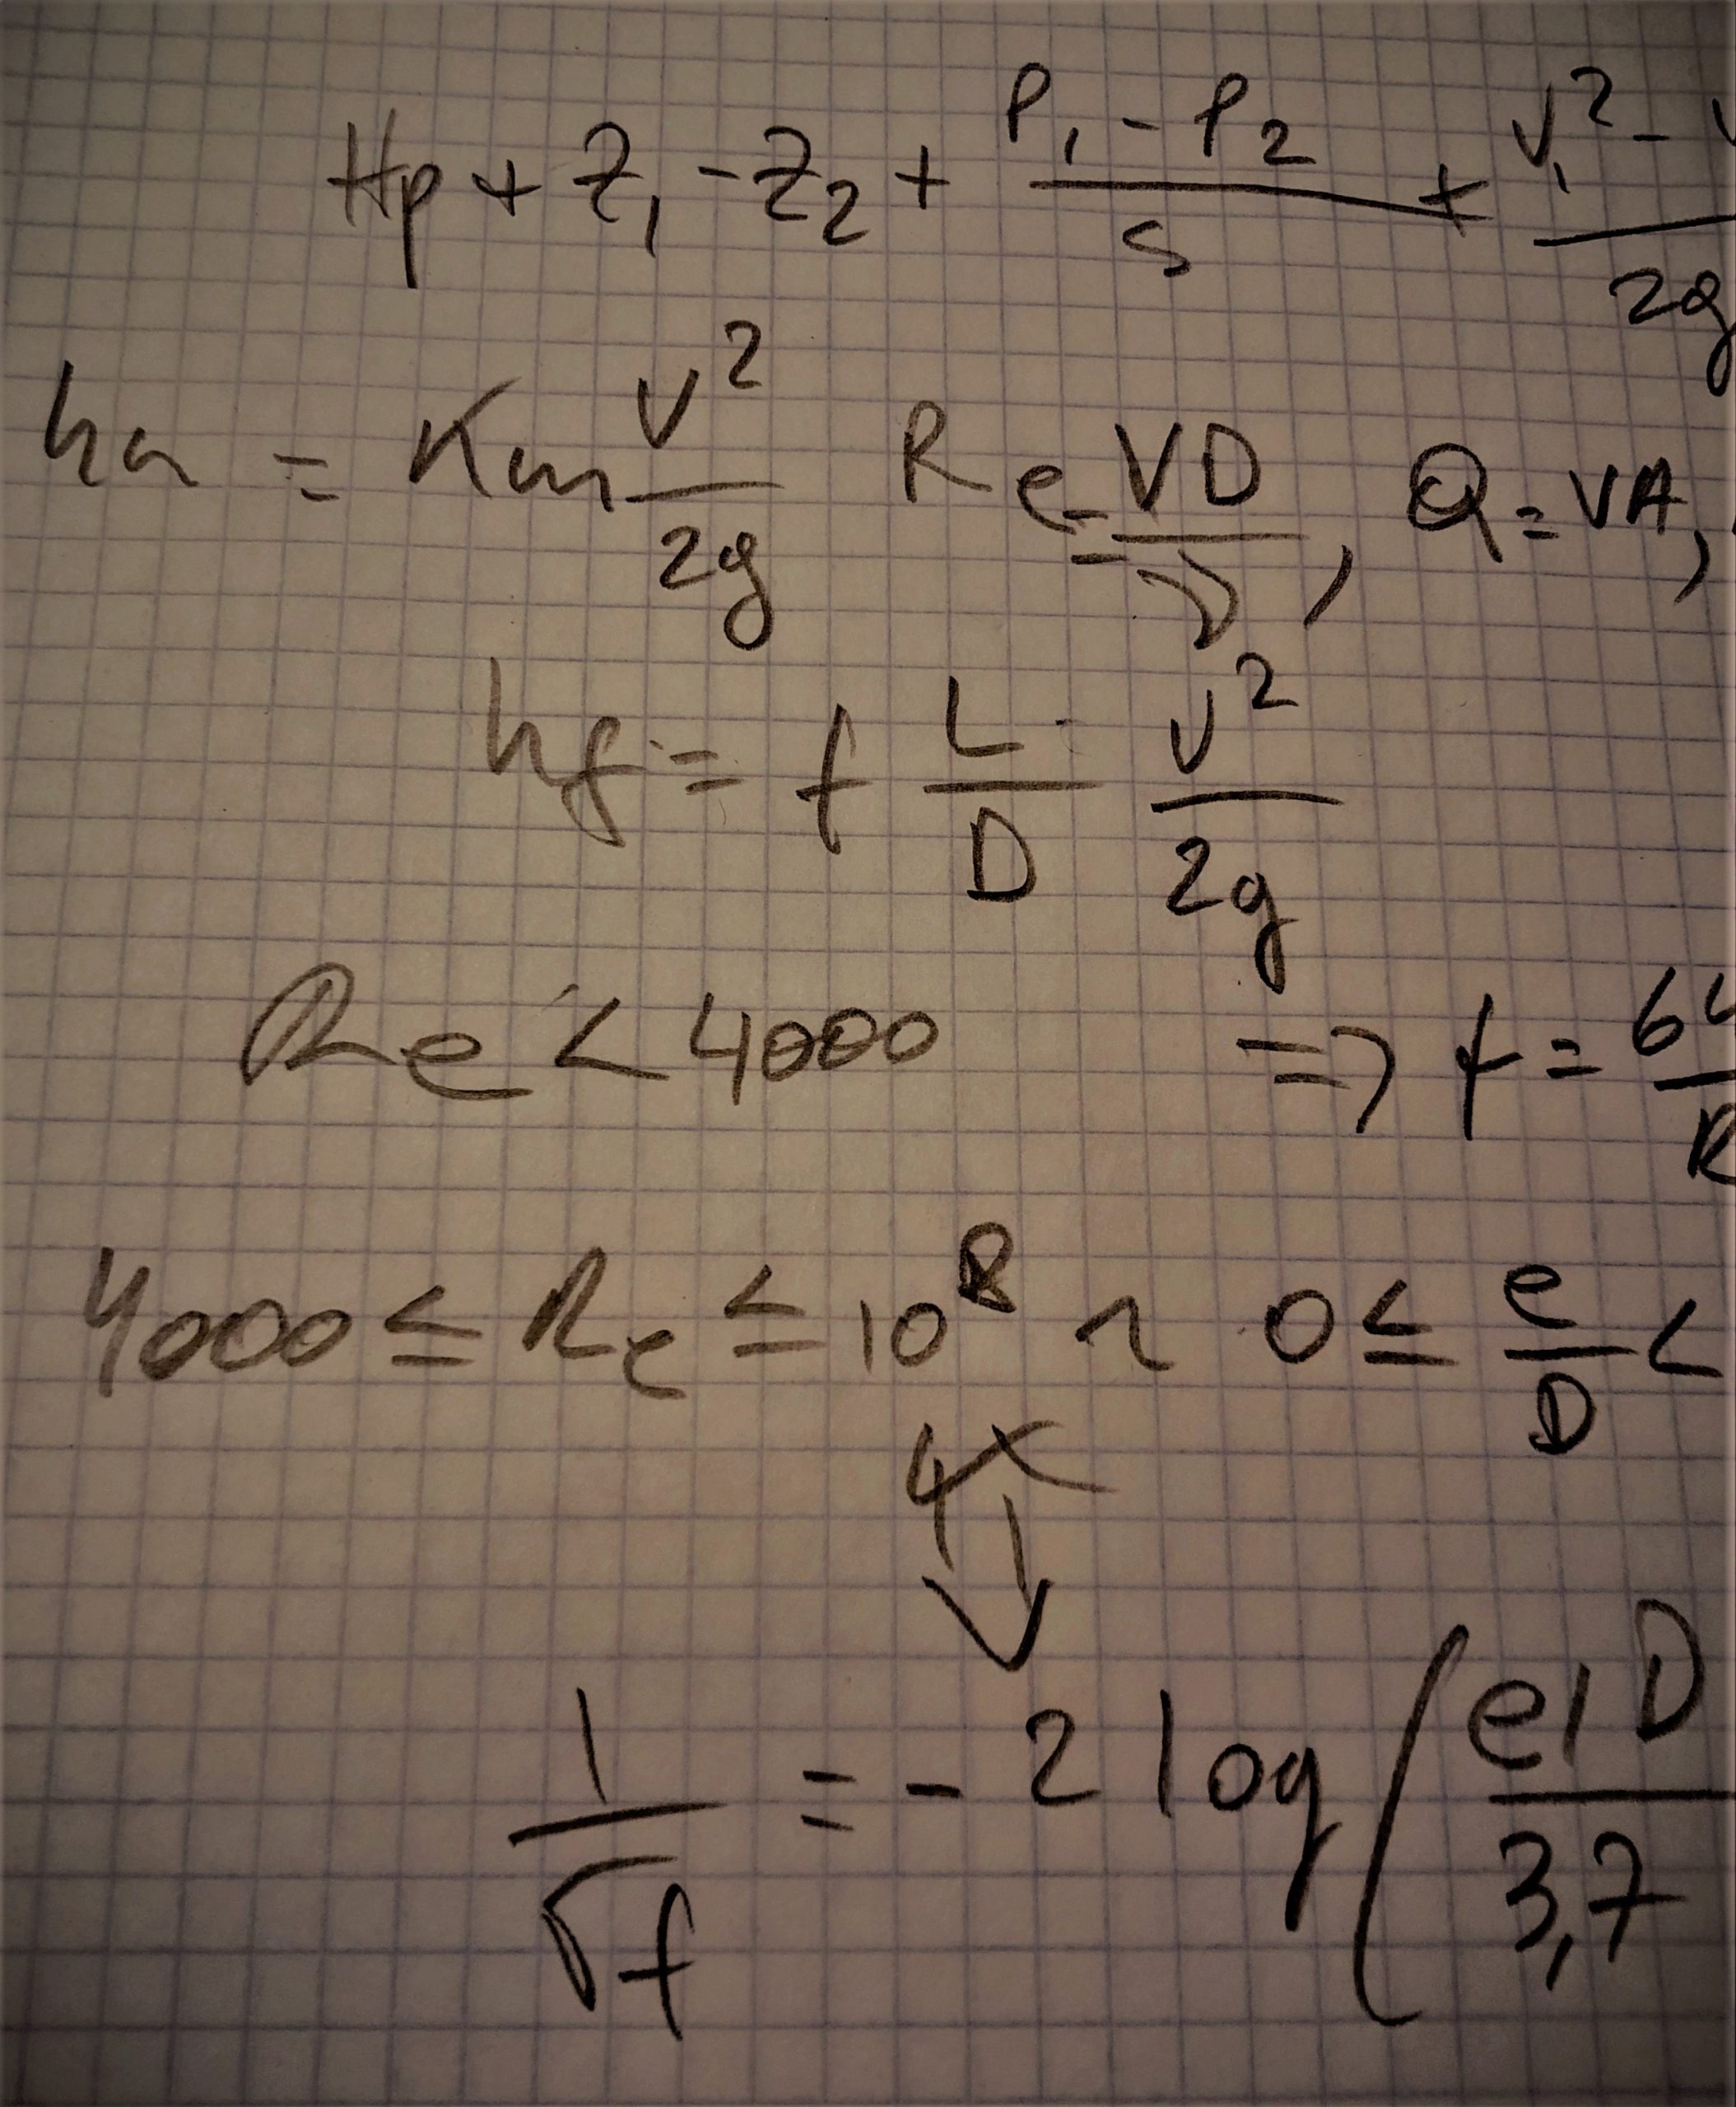 Hp + Z₁ - Z₂ + (P₁ - P₂)/S + (V₁² -)/2g
hm = Km V²/2g Re = VD/ν, Q = VA,
hf = f L/D V²/2g
Re < 4000 => f = 64/R
4000 ≤ Re ≤ 10⁸ ~ 0 ≤ e/D <
1/√f = -2 log(e/D / 3,7